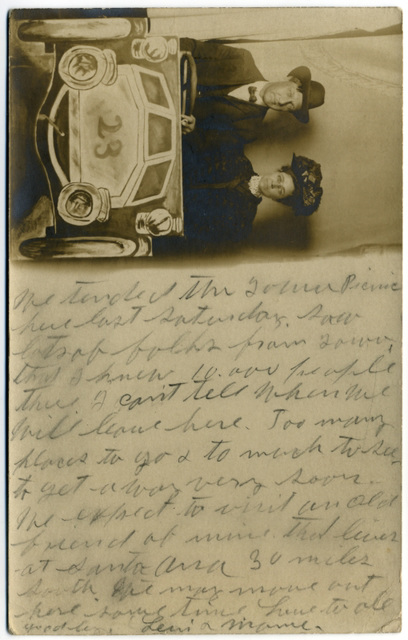 23
We tended the Iowa Picnic
here last Saturday. Saw
lots of folks from Iowa,
that I knew 10.000 people
there I cant tell when we
will leave here. Too many
places to go & to much to see
to get away very soon.
We expect to visit an old
friend of mine that lives
at Santa Ana 30 miles
south We may move out
here some time love to all
Levi & Mame.